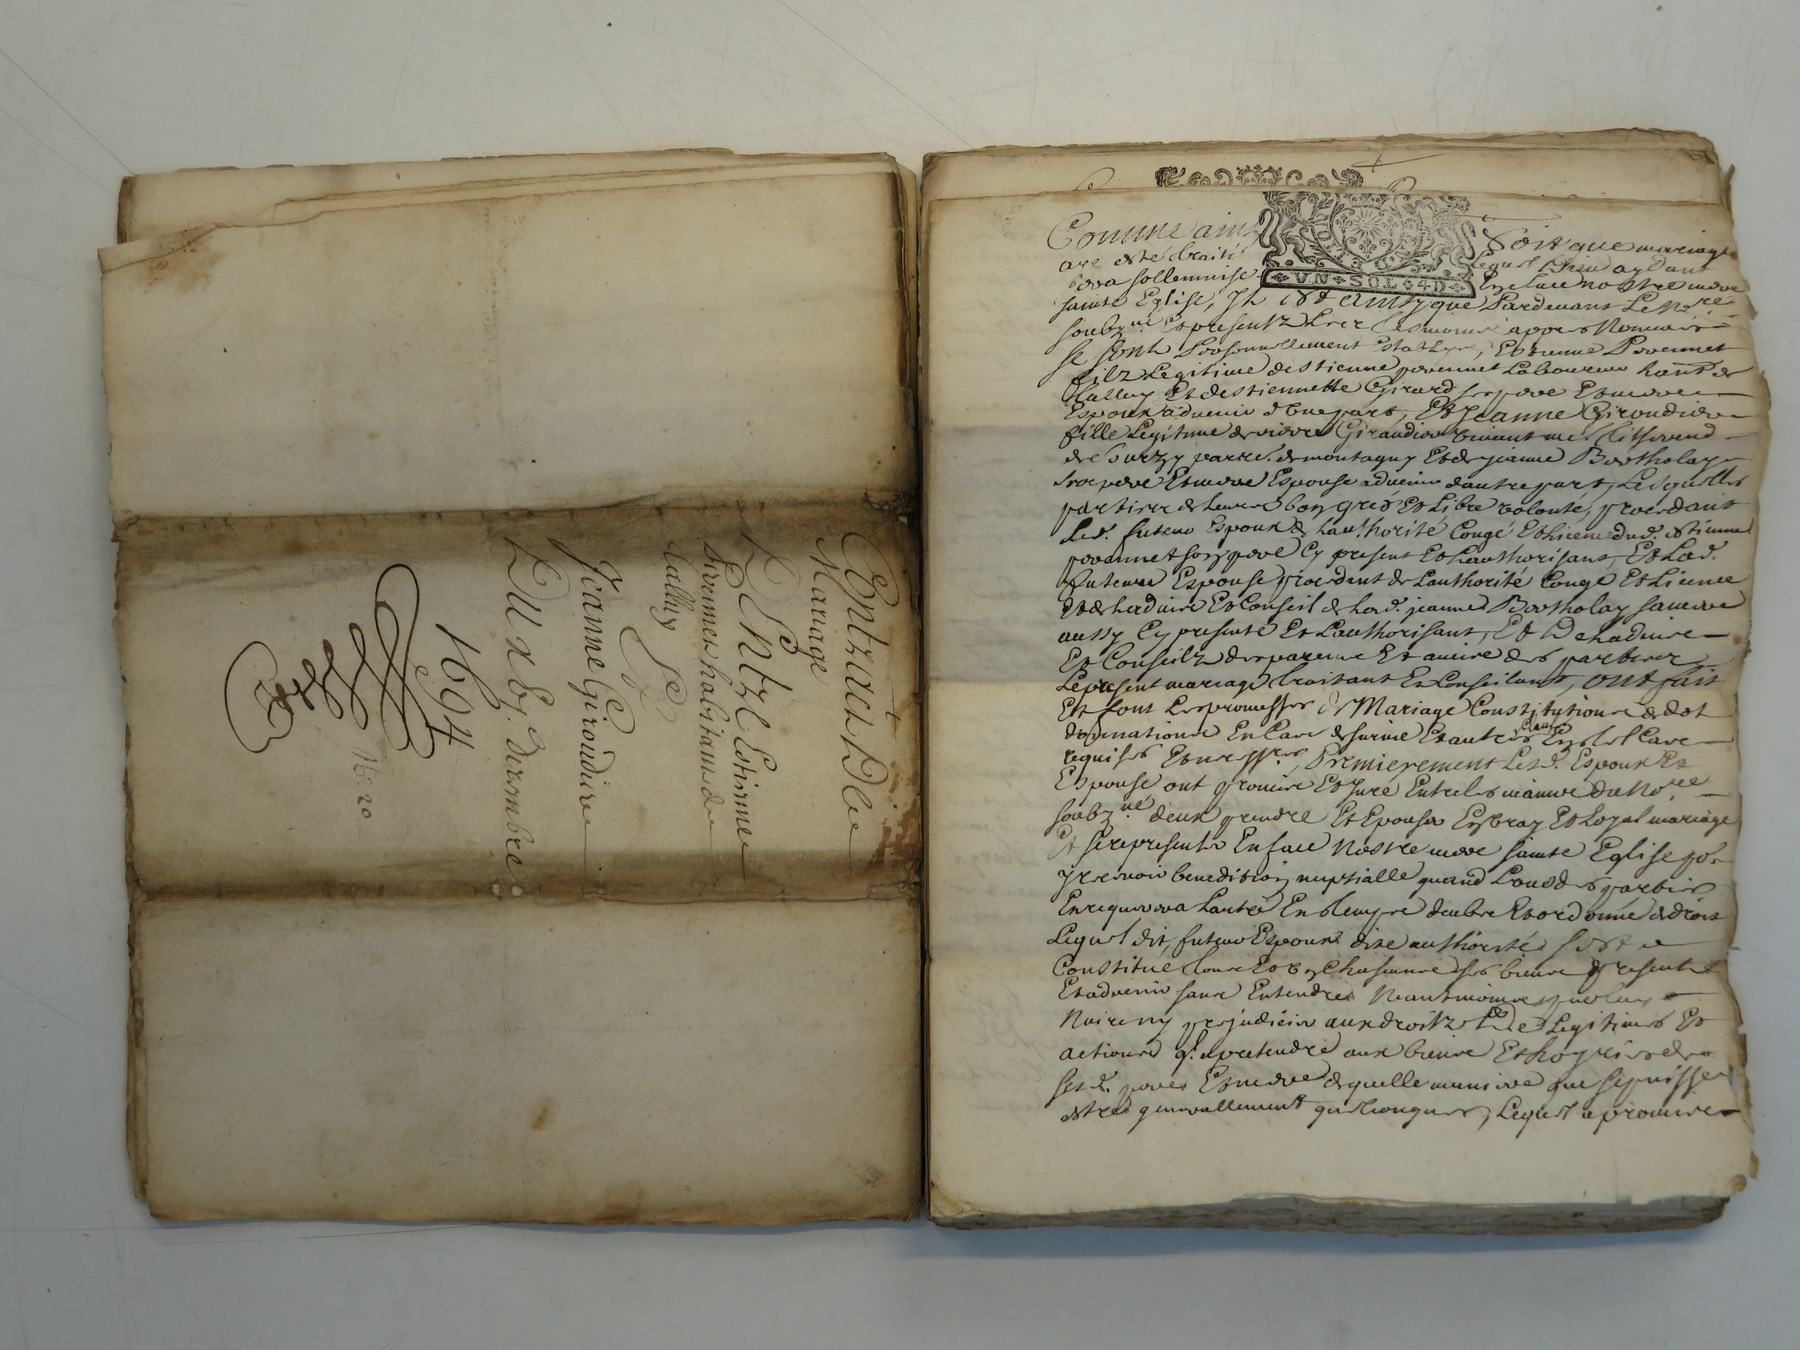 Contract De
Mariage
D'Entre Estienne
Provennet habitant de
Lally
Et
Jeanne Giroudiere
Du xbj. decembre
1694
No. 20
Comme ainsy Soit que mariage
aye esté traité Lequel Dieu aydant
sera sollemnisé En face nostre mere
sainte Eglise, Il est ainsy que Pardevant Le nore.
soubzné. Et presentz Les tesmoins appres Nommés
se sont Personnellement Establys, Estienne Provennet
filz Legitime d'estienne provennet Laboureur hant. de
Lally Et d'estiennette Girard ses pere Et mere
Espoux advenir d'Une part, Et Jeanne Giroudiere
fille Legitime de pierre Giraudier vivant me.
de Surzy parre. de montagny Et de jeanne Bertholay
ses pere Et mere Espouse advenir d'autre part, Lesquelles
parties de Leurs bon gré Et Libre volonté, procedant
Led. futeur Espoux de Lauthorité Congé Et licence dud. estienne
provennet son pere Cy present Et Lauthorisant, Et Lad.
future Espouse procedant de Lauthorité Congé Et Licence
Et de Ladvis Et Conseil de Lad. jeanne Bertholay sa mere
aussy Cy presente Et Lauthorisant, Et De Ladvis
Et Conseilz des parens Et amis des parties
Le present mariage traitant Et Conseilant, ont fait
Et font Les promesses de Mariage Constitutions de dot
donations En Cas de survie Et autres clauses En tel Cas
requises Et necesss.res, Premierement Lesd. Espoux Et
Espouse ont promis Et Juré Entre Les mains du Nore.
soubzné. deux prendre Et Epouser En vray Et Loyal mariage
Et se representer En face Nostre mere sainte Eglise pr.
y recevoir benediction nuptialle quand L'une des parties
En requerera Lautre En temps deubs Et ordonné de droit
Lequel dit, futeur Espoux dite authorité s'est
Constitué tous Et Un Chascuns ses biens presents
Et advenir sans Entendre Neantmoins par Luy
Nuire ny prejudicier aux droitz de Legitimes Et
actions ql. a pretendre aux biens Et hoyries de
sesd. pere Et mere de quelle maniere que se puisse
estre generallement quelconques, Lequel a promis
VN·SOL·4D